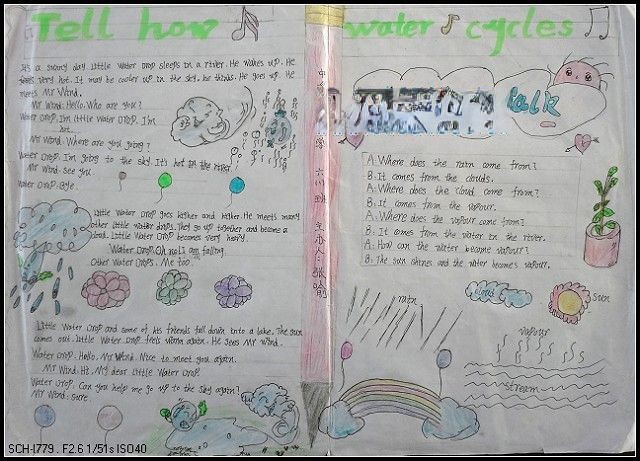 Tell how water cycles
It's a sunny day. Little Water Drop sleeps in a river. He wakes up. He
feels very hot. It may be cooler up in the sky, he thinks. He goes up. He
meets Mr Wind.
Mr Wind: Hello. Who are you?
Water Drop: I'm Little Water Drop. I'm
hot.
Mr Wind: Where are you going?
Water Drop: I'm going to the sky. It's hot in the river.
Mr Wind: See you.
Water Drop: Bye.
Little Water Drop goes higher and higher. He meets many
other little water drops. They go up together and become a
cloud. Little Water Drop becomes very heavy.
Water Drop: Oh no! I am falling.
Other Water Drops: Me too.
Little Water Drop and some of his friends fall down into a lake. The sun
comes out. Little Water Drop feels warm again. He sees Mr Wind.
Water Drop: Hello, Mr Wind. Nice to meet you again.
Mr Wind: Hi. My dear Little Water Drop.
Water Drop: Can you help me go up to the sky again?
Mr Wind: Sure.
talk
A: Where does the rain come from?
B: It comes from the clouds.
A: Where does the cloud come from?
B: It comes from the vapour.
A: Where does the vapour come from?
B: It comes from the water in the river.
A: How can the water become vapour?
B: The sun shines and the water becomes vapour.
rain
cloud
sun
vapour
stream
SCH-I779 . F2.6 1/51s ISO40